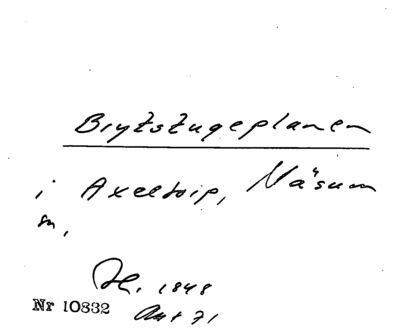 Brytstugeplanen
i Axeltorp, Näsum
sn,
H. 1848
Nr 10832